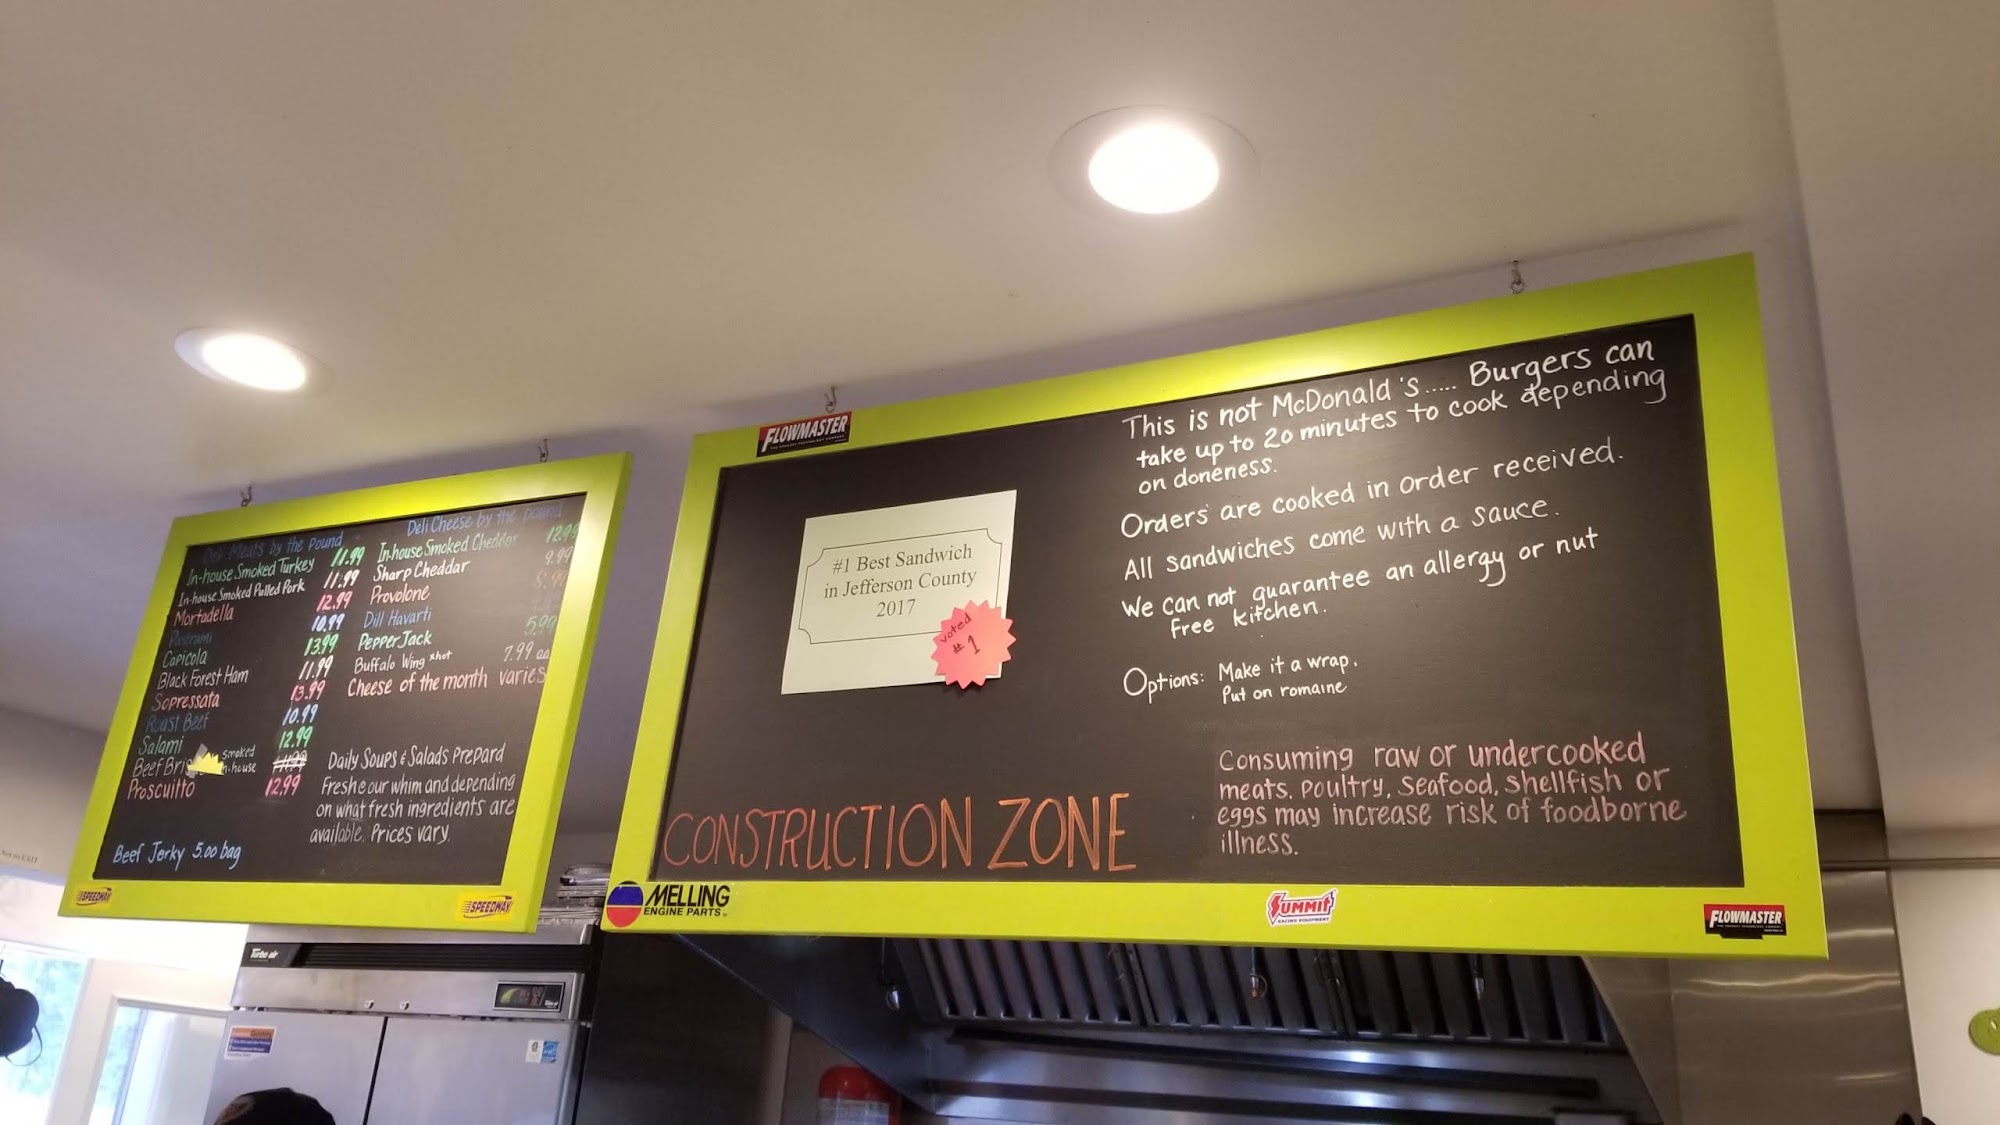 Deli Meats by the pound
In-house Smoked Turkey 11.99
In-house Smoked Pulled Pork 11.99
Mortadella 12.99
Pastrami 10.99
Capicola 13.99
Black Forest Ham 11.99
Sopressata 13.99
Roast Beef 10.99
Salami 12.99
Beef Bri smoked
in-house
Prosciutto 12.99
Beef Jerky 5.00 bag
Deli Cheese by the pound
In-house Smoked Cheddar 12.99
Sharp Cheddar 9.99
Provolone
Dill Havarti
Pepper Jack 5.99
Buffalo Wing *hot 7.99 ea
Cheese of the month varies
Daily Soups & Salads Prepard
Fresh @ our whim and depending
on what fresh ingredients are
available. Prices vary.
SPEEDWAY
SPEEDWAY
FLOWMASTER
#1 Best Sandwich
in Jefferson County
2017
voted
#1
CONSTRUCTION ZONE
This is not McDonald's..... Burgers can
take up to 20 minutes to cook depending
on doneness.
Orders are cooked in order received.
All sandwiches come with a sauce.
We can not guarantee an allergy or nut
free kitchen.
Options: Make it a wrap.
Put on romaine
Consuming raw or undercooked
meats, poultry, seafood, shellfish or
eggs may increase risk of foodborne
illness.
MELLING
ENGINE PARTS
SUMMIT
RACING EQUIPMENT
FLOWMASTER
Turbo air